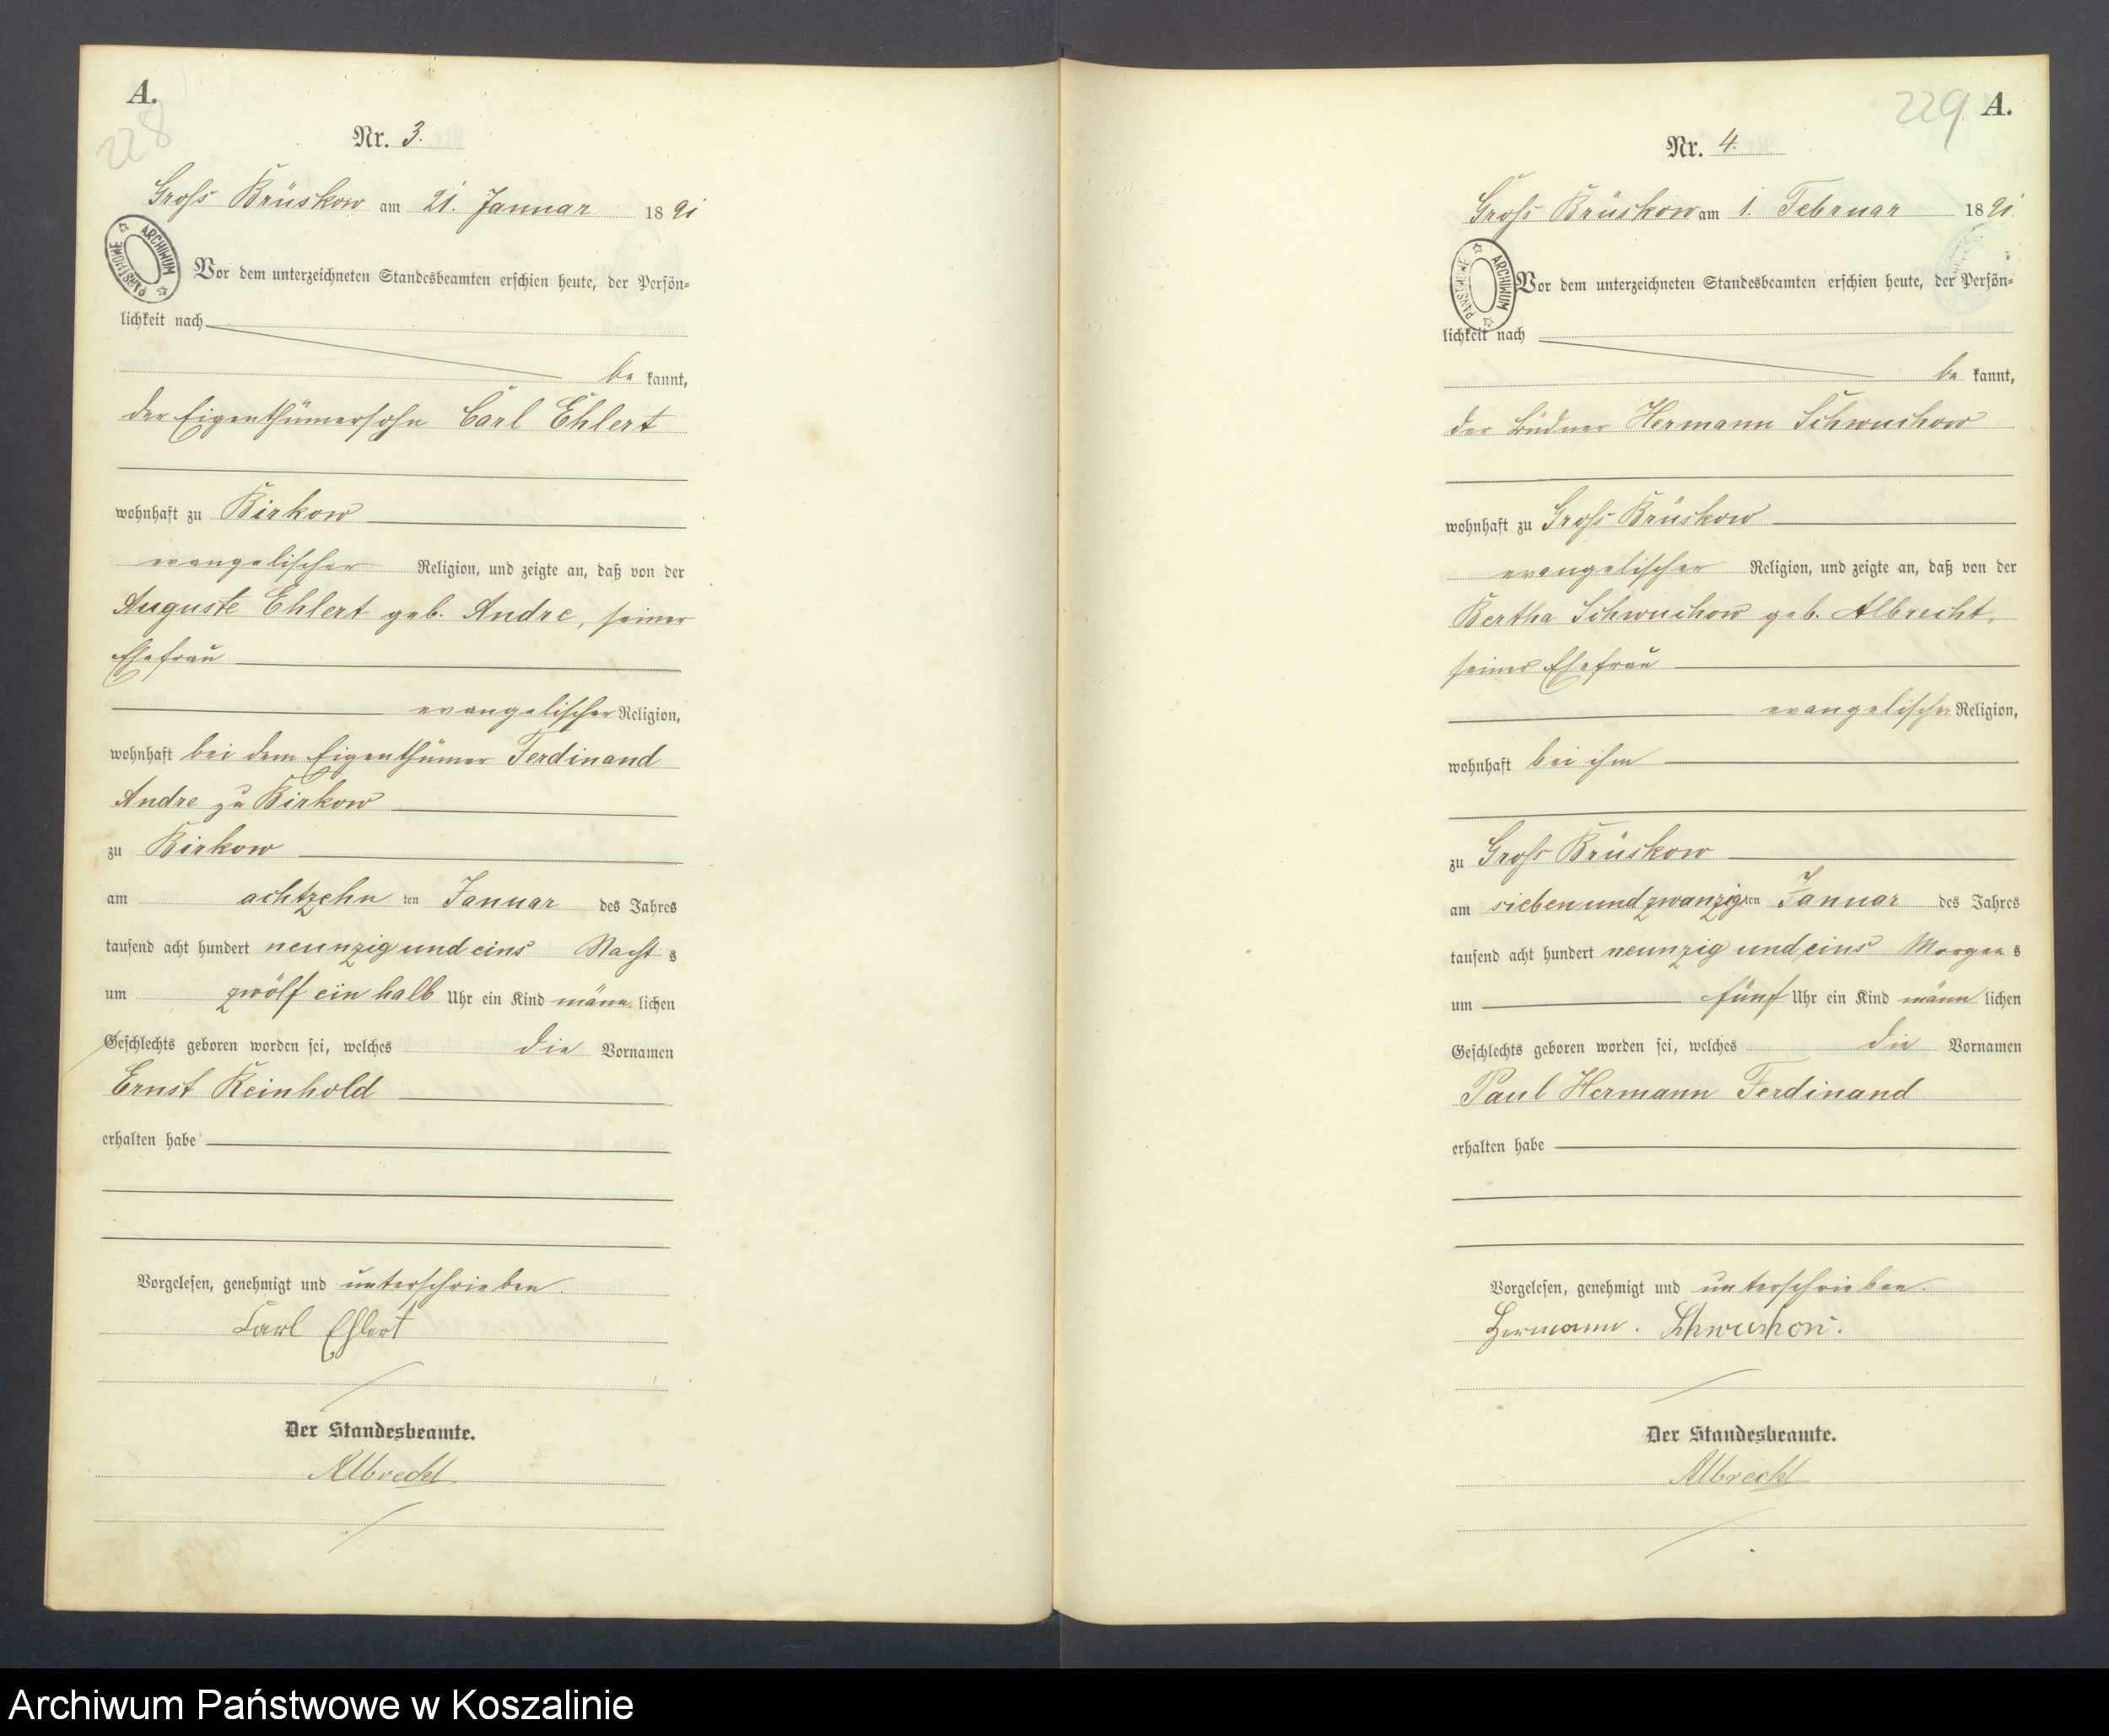 A.
228
Nr. 3.
Groß Brüskow am 21. Januar 1891
ARCHIWUM PAŃSTWOWE
Vor dem unterzeichneten Standesbeamten erschien heute, der Persön-
lichkeit nach
be kannt,
der Eigenthümersohn Carl Ehlert
wohnhaft zu Birkow
evangelischer Religion, und zeigte an, daß von der
Auguste Ehlert geb. Andre, seiner
Ehefrau
evangelischer Religion,
wohnhaft bei dem Eigenthümer Ferdinand
Andre zu Birkow
zu Birkow
am achtzehn ten Januar des Jahres
tausend acht hundert neunzig und eins Nacht s
um zwölf ein halb Uhr ein Kind männ lichen
Geschlechts geboren worden sei, welches die Vornamen
Ernst Reinhold
erhalten habe
Vorgelesen, genehmigt und unterschrieben.
Carl Ehlert
Der Standesbeamte.
Albrecht
229 A.
Nr. 4.
Groß Brüskow am 1. Februar 1891.
ARCHIWUM PAŃSTWOWE
Vor dem unterzeichneten Standesbeamten erschien heute, der Persön-
lichkeit nach
be kannt,
der Büdner Hermann Schwuchow
wohnhaft zu Groß Brüskow
evangelischer Religion, und zeigte an, daß von der
Bertha Schwuchow geb. Albrecht,
seiner Ehefrau
evangelischer Religion,
wohnhaft bei ihm
zu Groß Brüskow
am siebenundzwanzigsten Januar des Jahres
tausend acht hundert neunzig und eins Morgen s
um fünf Uhr ein Kind männ lichen
Geschlechts geboren worden sei, welches die Vornamen
Paul Hermann Ferdinand
erhalten habe
Vorgelesen, genehmigt und unterschrieben.
Hermann. Schwuchow.
Der Standesbeamte.
Albrecht
Archiwum Państwowe w Koszalinie